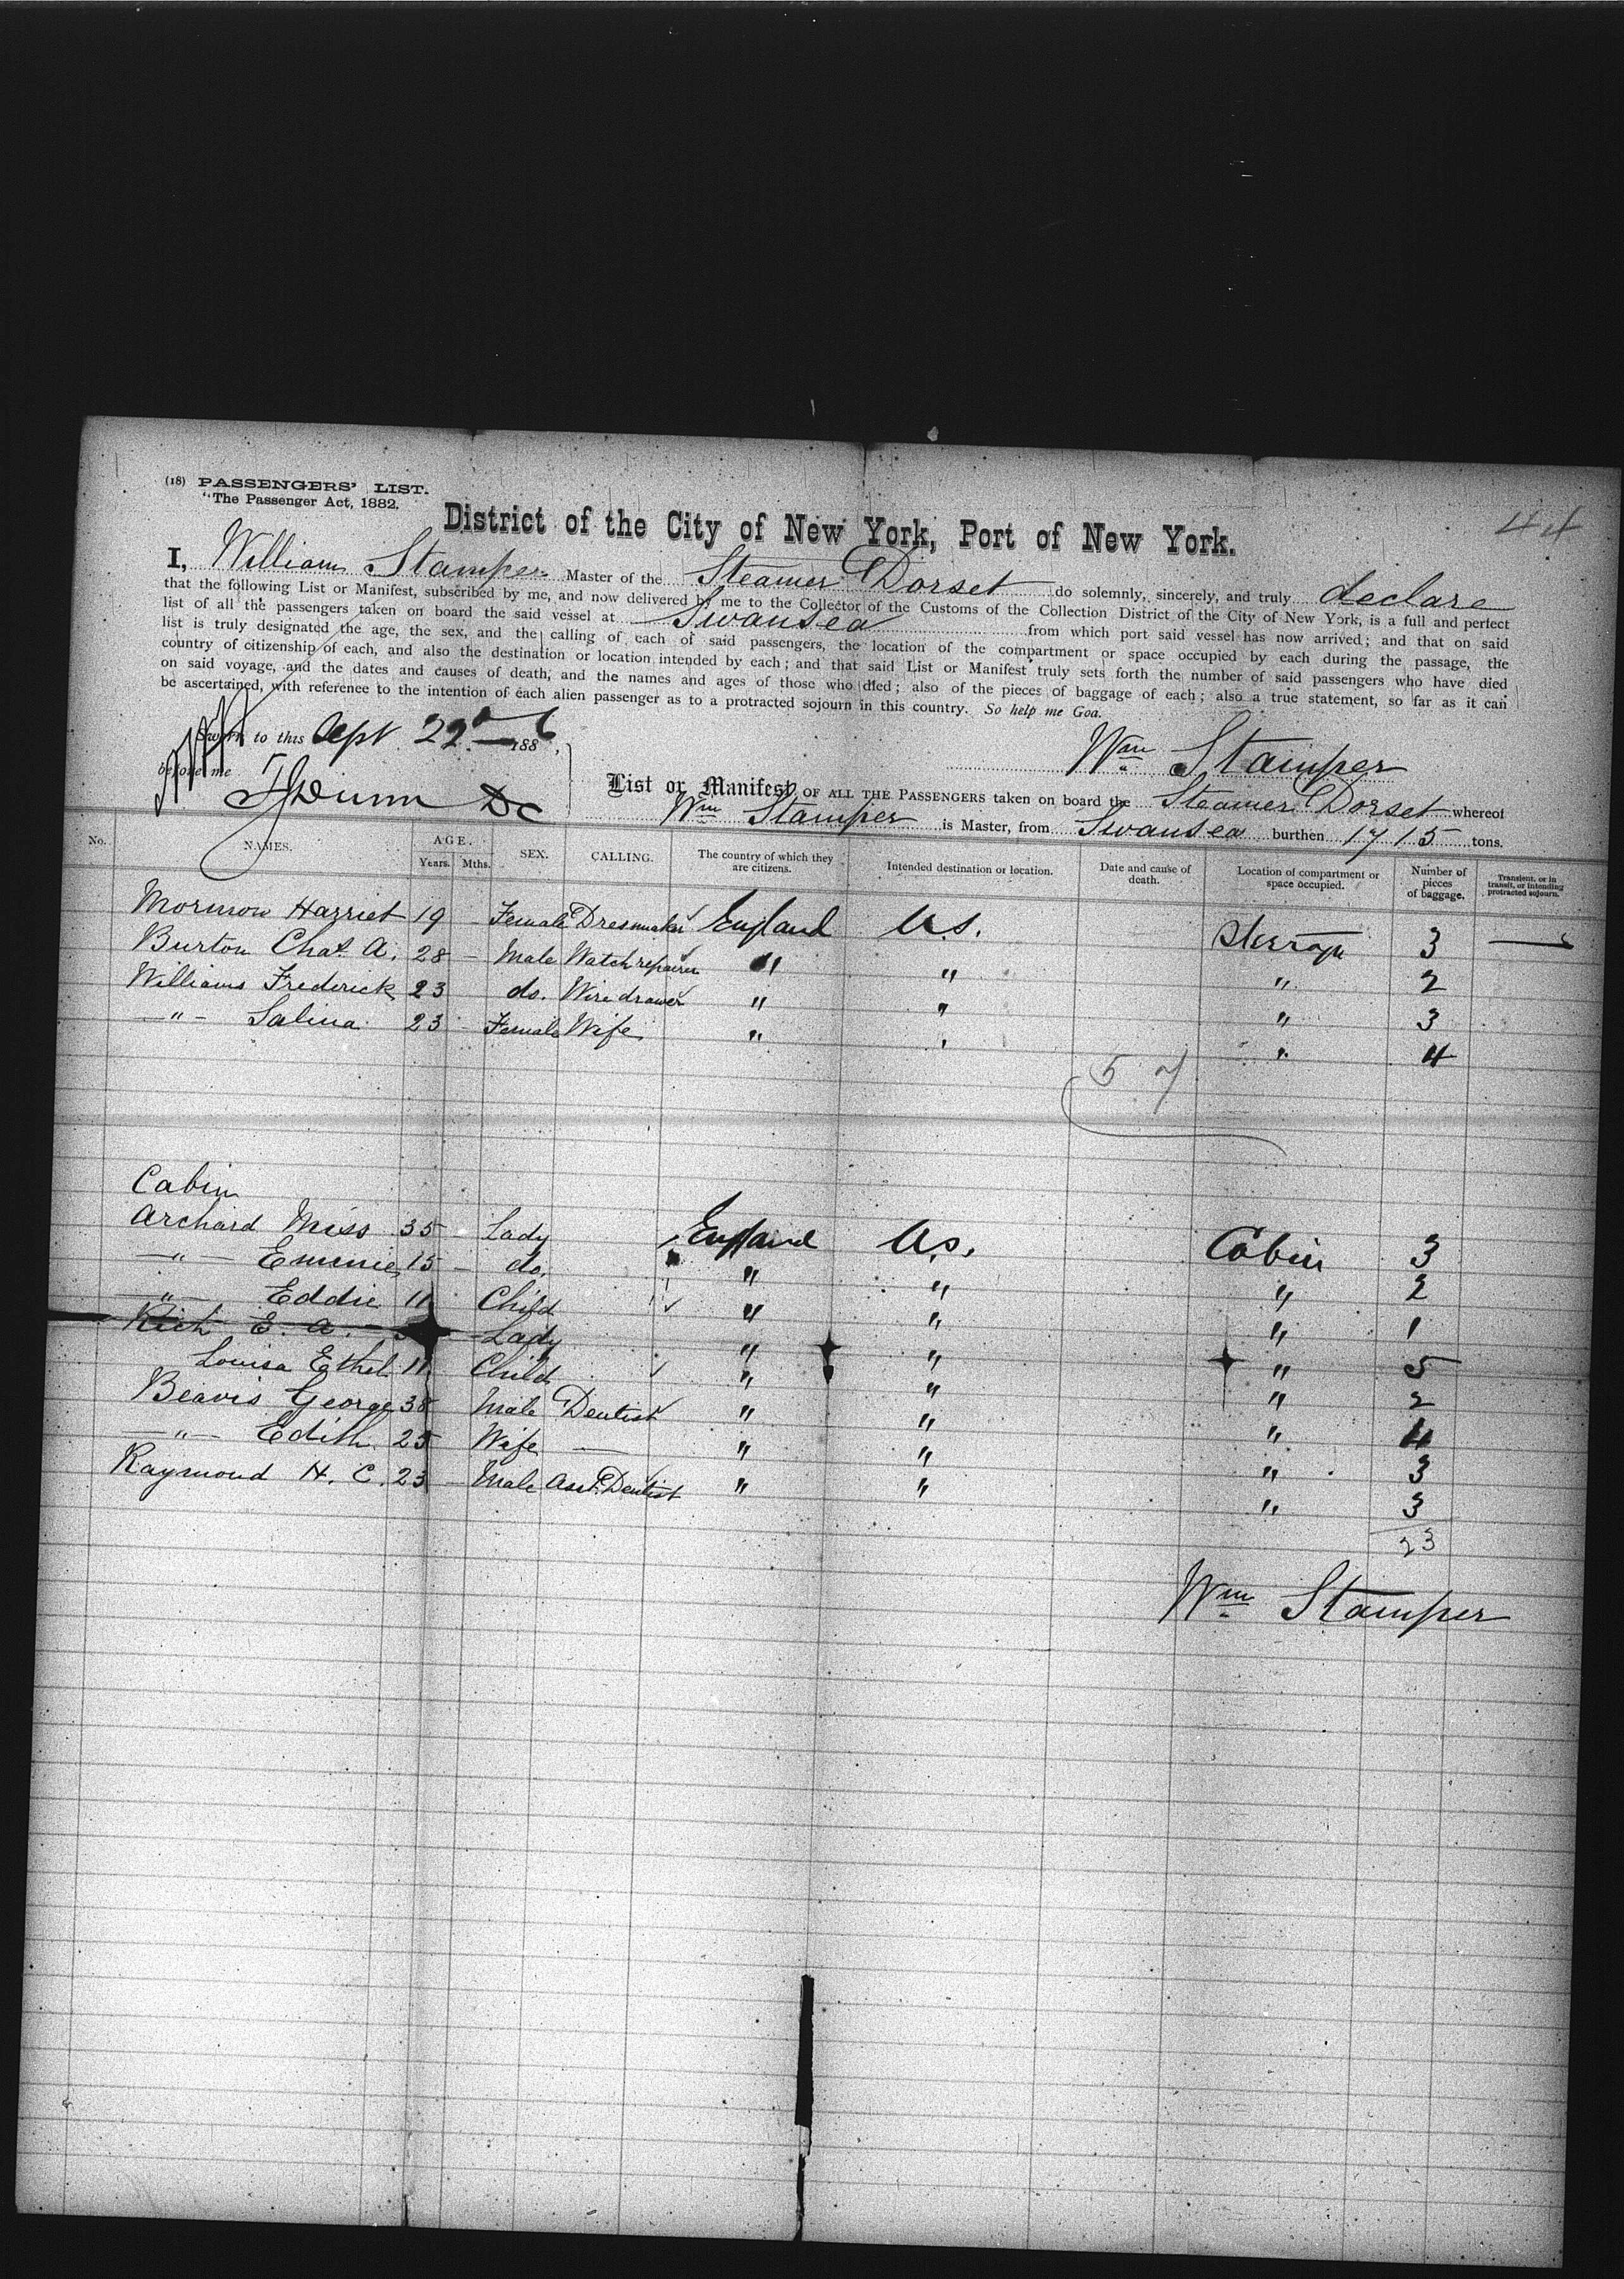 44
(18) PASSENGERS' LIST.
"The Passenger Act, 1882.
District of the City of New York, Port of New York.
I, William Stamper Master of the Steamer Dorset do solemnly, sincerely, and truly declare
that the following List or Manifest, subscribed by me, and now delivered by me to the Collector of the Customs of the Collection District of the City of New York, is a full and perfect
list of all the passengers taken on board the said vessel at Swansea from which port said vessel has now arrived; and that on said
list is truly designated the age, the sex, and the calling of each of said passengers, the location of the compartment or space occupied by each during the passage, the
country of citizenship of each, and also the destination or location intended by each; and that said List or Manifest truly sets forth the number of said passengers who have died
on said voyage, and the dates and causes of death, and the names and ages of those who died; also of the pieces of baggage of each; also a true statement, so far as it can
be ascertained, with reference to the intention of each alien passenger as to a protracted sojourn in this country. So help me God.
Sworn to this Sept 22nd 1886,
before me
Wm Stamper
Dunn DC
List or Manifest OF ALL THE PASSENGERS taken on board the Steamer Dorset whereof
Wm Stamper is Master, from Swansea burthen 1715 tons.
No. NAMES. AGE. Years. Mths. SEX. CALLING. The country of which they are citizens. Intended destination or location. Date and cause of death. Location of compartment or space occupied. Number of pieces of baggage. Transient, or in transit, or intending protracted sojourn.
Harriet 19 - Female Dresmaker England U.S. Steerage 3 —
Burton Chas. A. 28 - Male Watch repairer " " " 2
Williams Frederick 23 do. Wire drawer " " " 3
-"- Salina 23 - Female Wife " " " 4
57
Cabin
Archard Miss 35 - Lady England U.S. Cabin 3
-"- 15 - do. " " " 2
-"- Eddie 11 Child " " " 1
Rich E. A. - Lady " " " 5
Louisa Ethel 11 Child " " " 2
Beavis George 38 Male Dentist " " " 4
-"- Edith 25 Wife — " " " 3
Raymond H. C. 23 - Male Asst. Dentist " " " 3
23
Wm Stamper